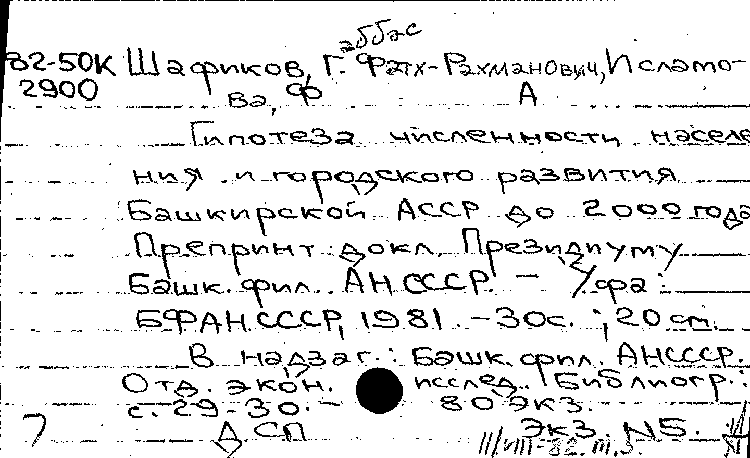 аббас
82-50К Шафиков, Г. Фатх-Рахманович, Исламо-
2900 ва, Ф А
Гипотеза численности населе
ния и городского развития
Башкирской АССР до 2000 года
Препринт докл. Президиуму
Башк. фил. АН СССР. – Уфа:
БФАН СССР, 1981. – 30с. ; 20 см.
В надзаг.: Башк. фил. АН СССР.
Отд. экон. исслед. Библиогр.:
с. 29-30. – 80 экз.
7 ДСП Экз. N5.